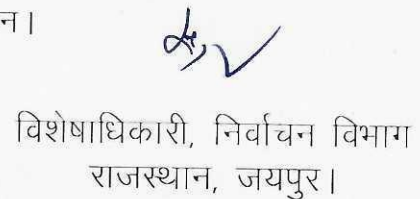 न।
विशेषाधिकारी, निर्वाचन विभाग
राजस्थान, जयपुर।